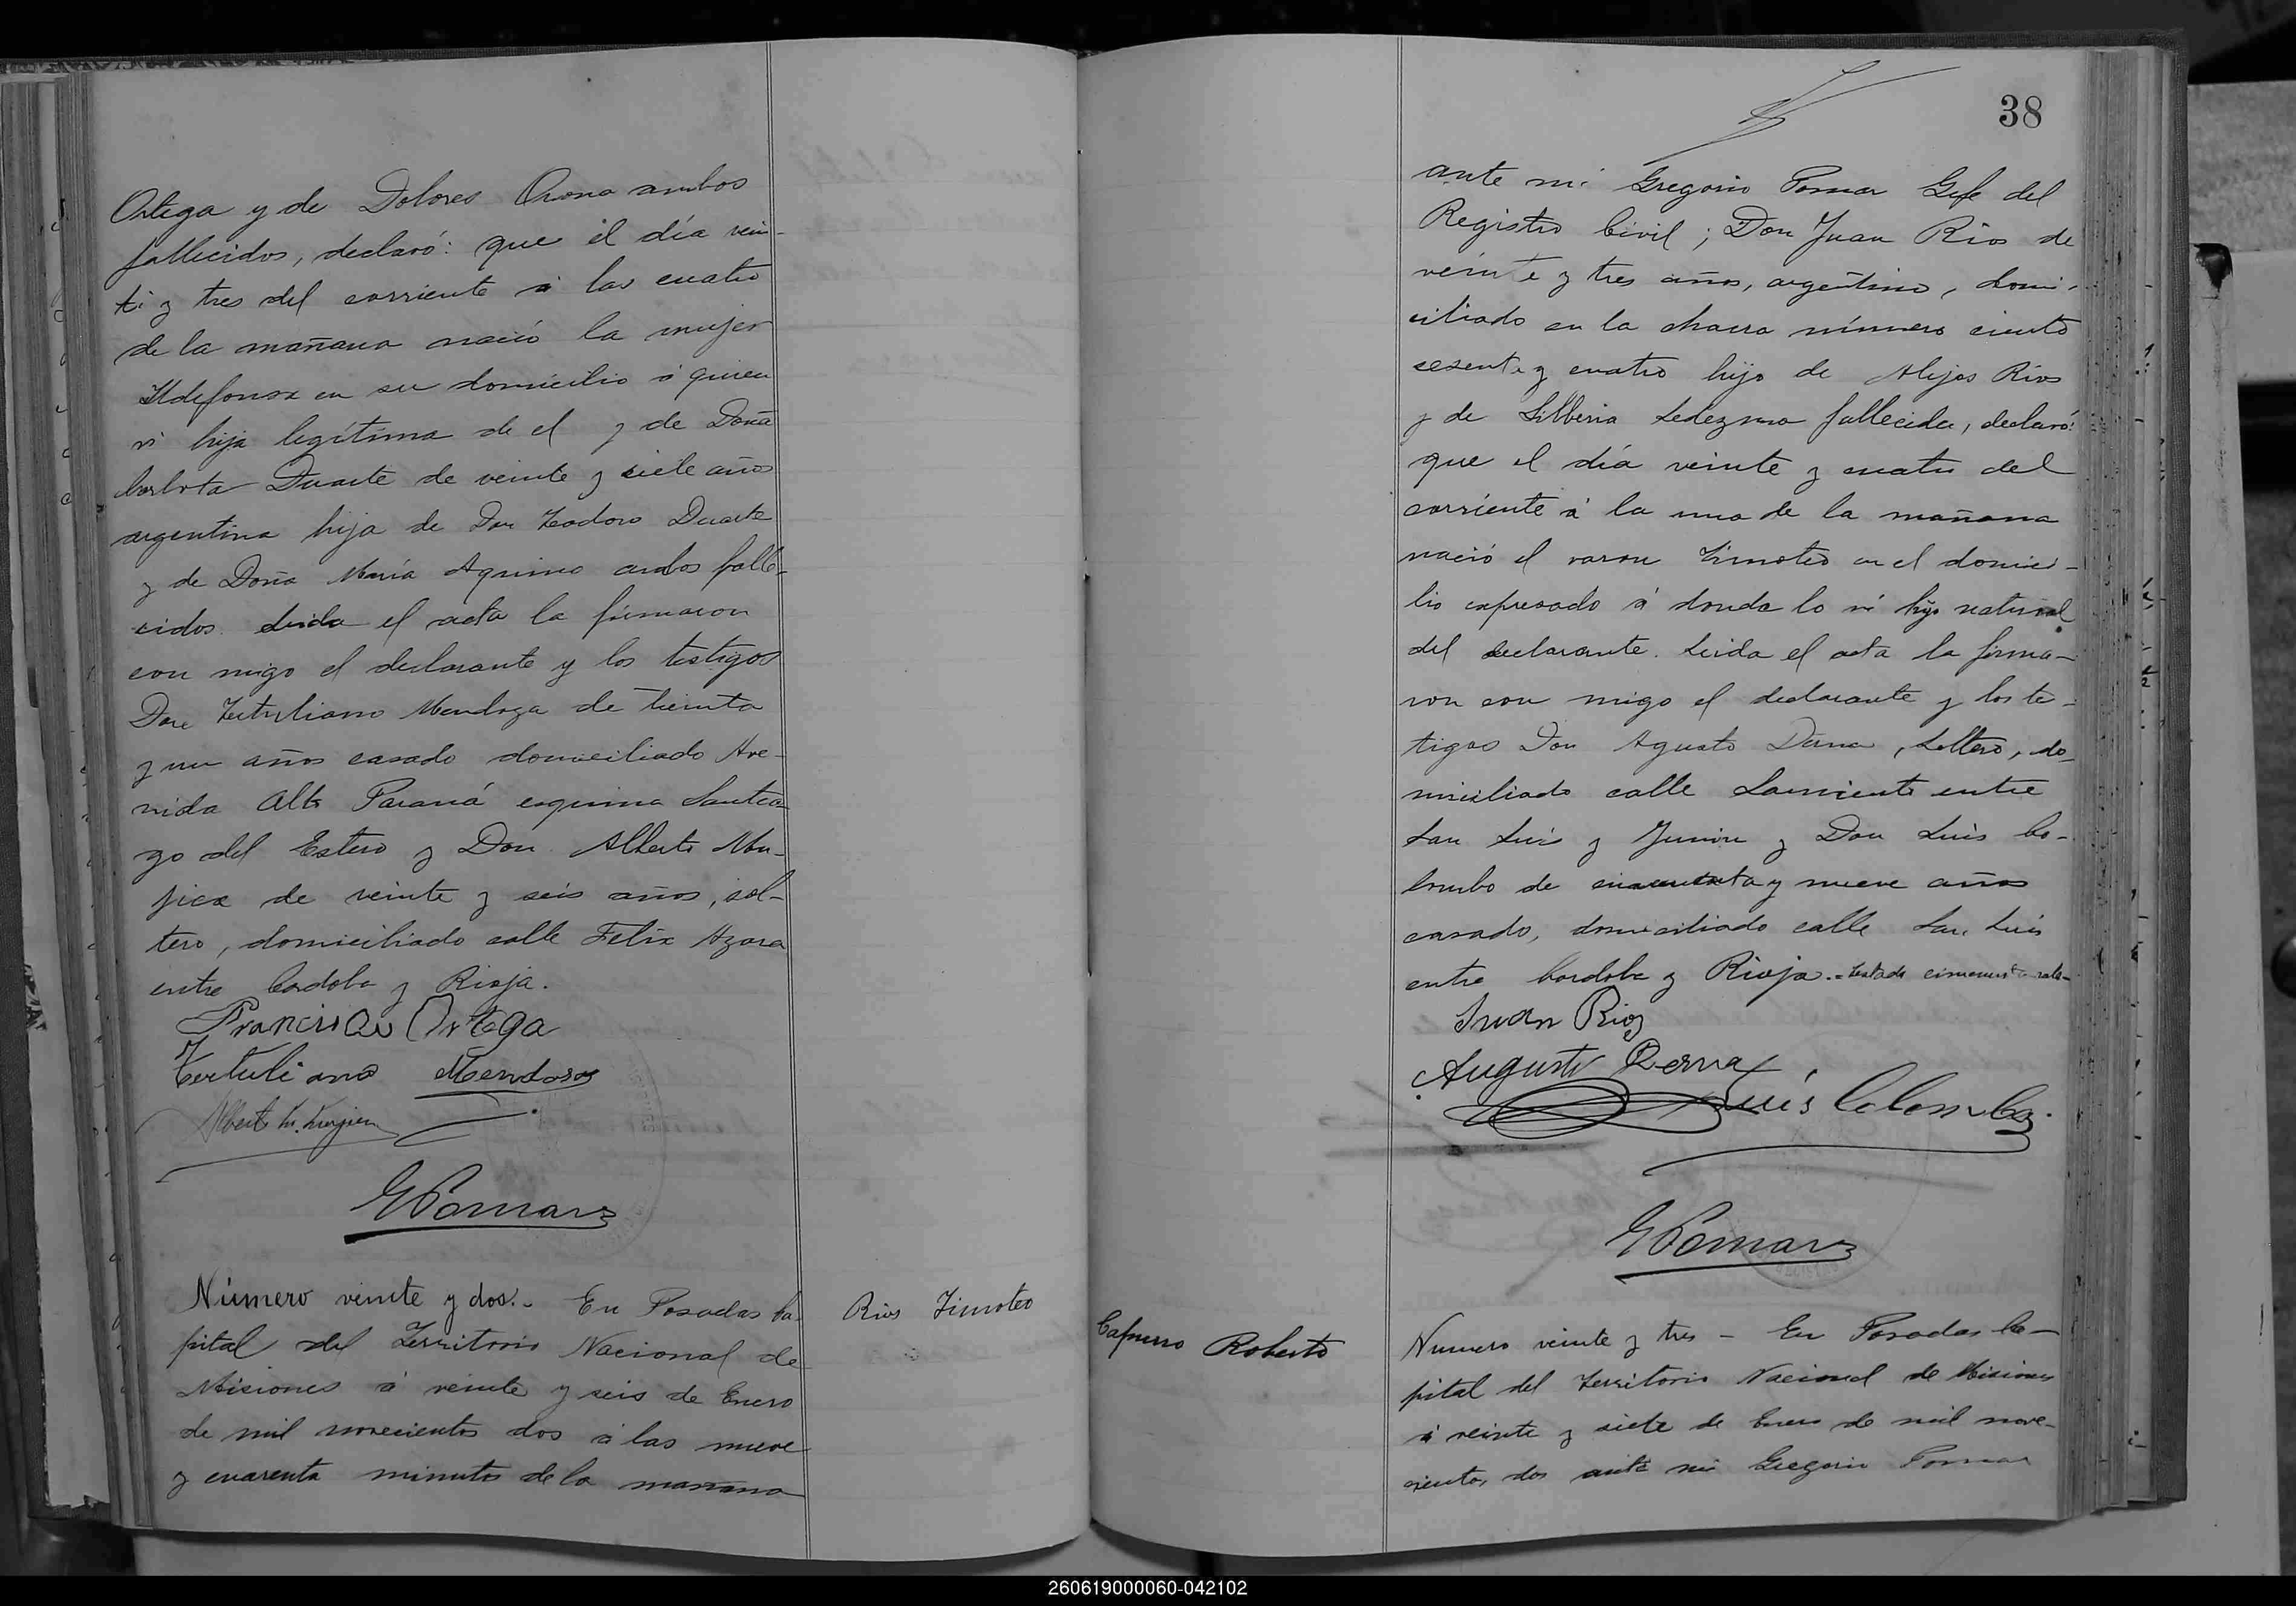 Ortega y de Dolores Orona ambos
fallecidos, declaró: que el día vein-
ti y tres del corriente á las cuatro
de la mañana nació la mujer
Ildefonsa en su domicilio á quien
ví hija legítima de el y de Doña
Carlota Duarte de veinte y siete años
argentina hija de Don Teodoro Duarte
y de Doña María Aquino ambos falle-
cidos. Leida el acta la firmaron
con migo el declarante y los testigos
Don Tertuliano Mendoza de treinta
y un años casado domiciliado Ave-
nida Alto Paraná esquina Santia
go del Estero y Don Alberto
de veinte y seis años, sol-
tero, domiciliado calle Felix Azara
entre Cordoba y Rioja.
Francisco Ortega
Tertuliano Mendosa
Albert
GPomar
Número veinte y dos.- En Posadas Ca-
pital del Territorio Nacional de
Misiones á veinte y seis de Enero
de mil novecientos dos á las nueve
y cuarenta minutos de la mañana
Rios Timoteo
38
ante mí Gregorio Pomar Gefe del
Registro Civil; Don Juan Rios de
veinte y tres años, argentino, domi-
ciliado en la chacra número ciento
sesenta y cuatro hijo de Alejos Rios
y de Silberia Ledezma fallecida, declaró:
que el día veinte y cuatro del
corriente á la una de la mañana
nació el varon Timoteo en el domici-
lio expresado á donde lo ví hijo natural
del declarante. Leida el acta la firma-
ron con migo el declarante y los te-
tigos Don Agusto Derna, soltero, do-
miciliado calle Sarmiento entre
San Luis y Junin y Don Luis Co-
lombo de cincuenta y nueve años
casado, domiciliado calle San Luis
entre Cordoba y Rioja.= Testado cincuenta vale-
Juan Rios
Augusto Derna
Luis Colombo.
GPomar
Capurro Roberto
Numero veinte y tres - En Posadas Ca-
pital del Territorio Nacional de Misiones
á veinte y siete de Enero de mil nove-
cientos dos ante mi Gregorio Pomar
260619000060-042102